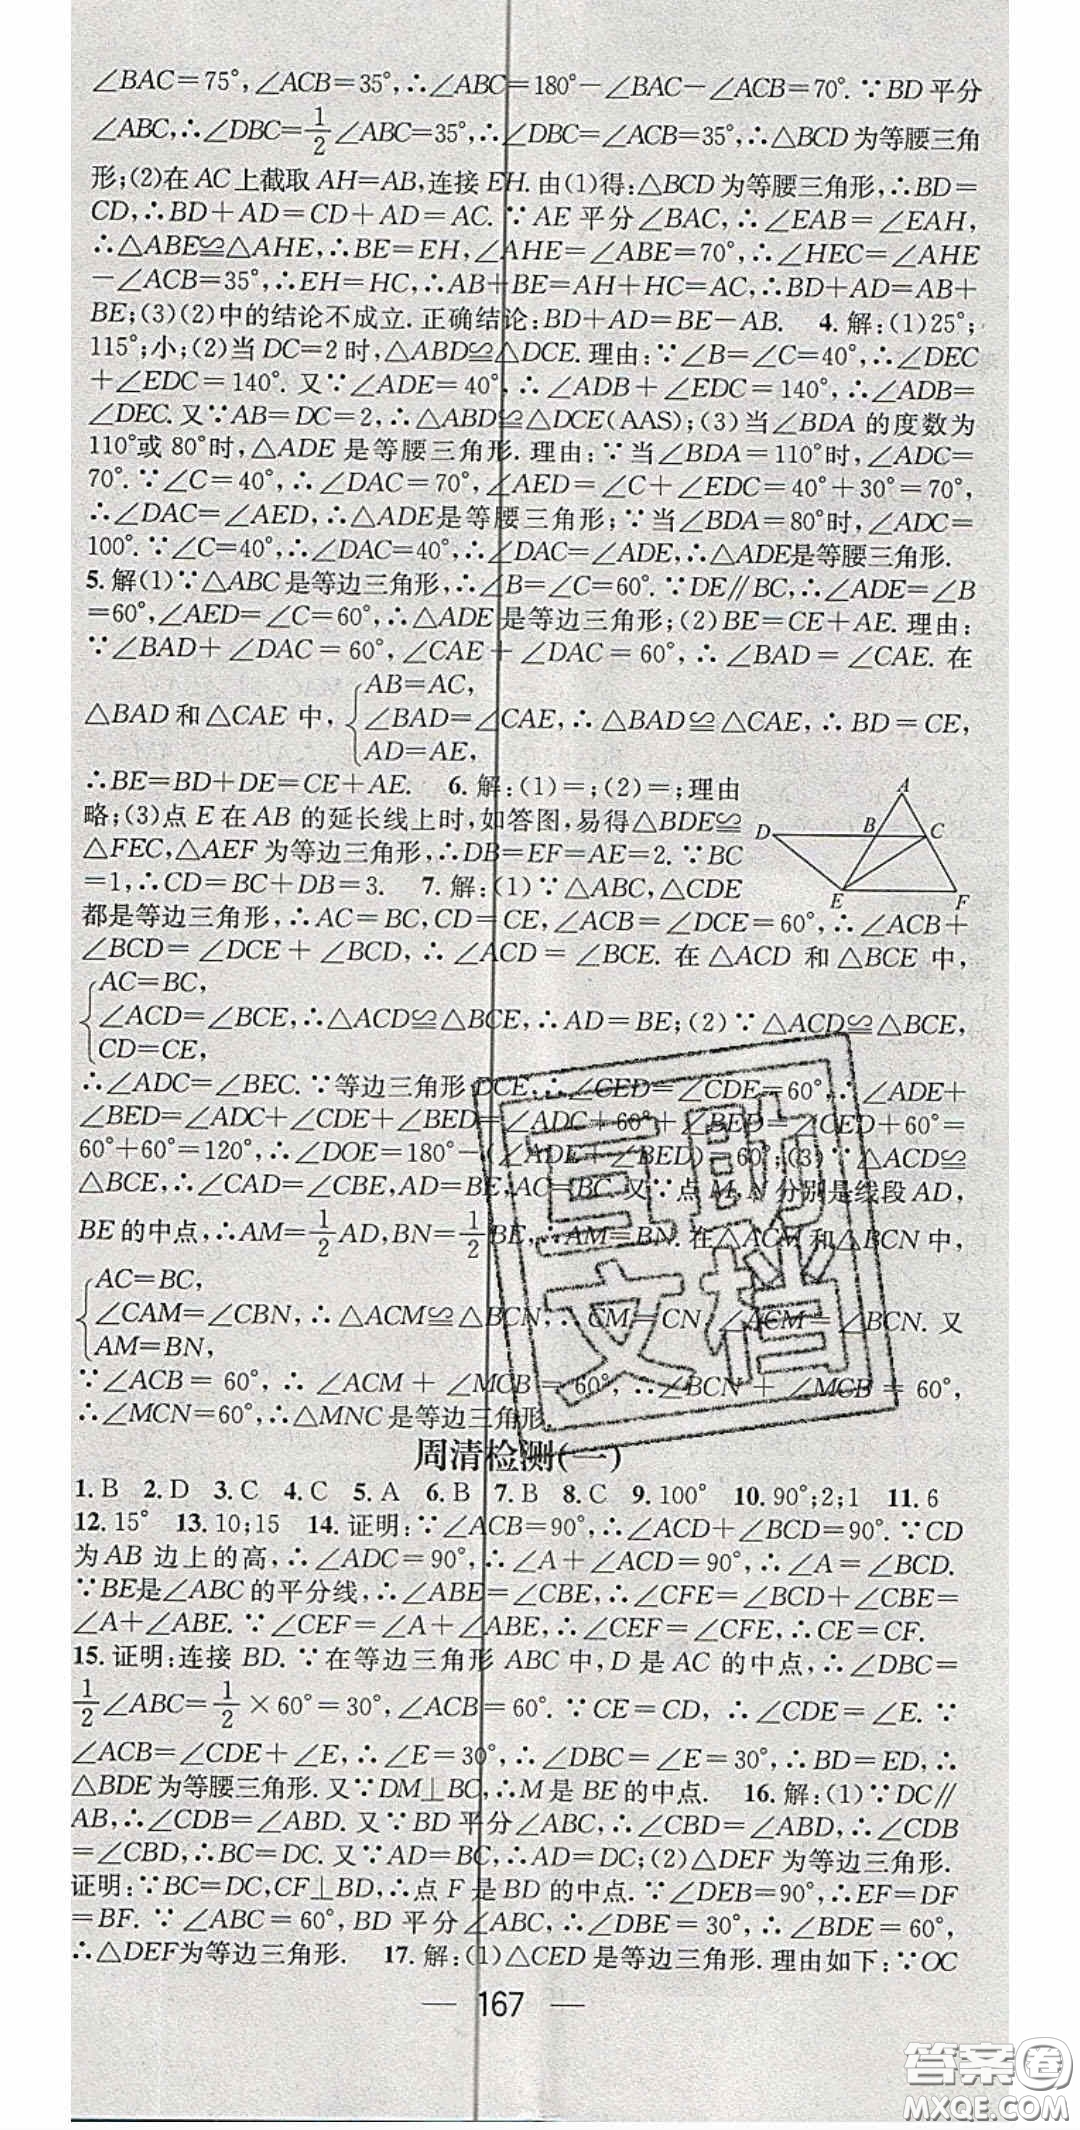 ∠BAC=75°,∠ACB=35°,∴∠ABC=180°-∠BAC-∠ACB=70°.∵BD平分
∠ABC,∴∠DBC=1/2∠ABC=35°,∴∠DBC=∠ACB=35°,∴△BCD为等腰三角
形;(2)在AC上截取AH=AB,连接EH.由(1)得:△BCD为等腰三角形,∴BD=
CD,∴BD+AD=CD+AD=AC.∵AE平分∠BAC,∴∠EAB=∠EAH,
∴△ABE≌△AHE,∴BE=EH,∠AHE=∠ABE=70°,∴∠HEC=∠AHE
-∠ACB=35°,∴EH=HC,∴AB+BE=AH+HC=AC,∴BD+AD=AB+
BE;(3)(2)中的结论不成立.正确结论:BD+AD=BE-AB. 4.解:(1)25°;
115°;小;(2)当DC=2时,△ABD≌△DCE.理由:∵∠B=∠C=40°,∴∠DEC
+∠EDC=140°.又∵∠ADE=40°,∴∠ADB+∠EDC=140°,∴∠ADB=
∠DEC.又∵AB=DC=2,∴△ABD≌△DCE(AAS);(3)当∠BDA的度数为
110°或80°时,△ADE是等腰三角形.理由:∵当∠BDA=110°时,∠ADC=
70°.∵∠C=40°,∴∠DAC=70°,∠AED=∠C+∠EDC=40°+30°=70°,
∴∠DAC=∠AED,∴△ADE是等腰三角形;∵当∠BDA=80°时,∠ADC=
100°.∵∠C=40°,∴∠DAC=40°,∴∠DAC=∠ADE,∴△ADE是等腰三角形.
5.解(1)∵△ABC是等边三角形,∴∠B=∠C=60°.∵DE∥BC,∴∠ADE=∠B
=60°,∠AED=∠C=60°,∴△ADE是等边三角形;(2)BE=CE+AE.理由:
∵∠BAD+∠DAC=60°,∠CAE+∠DAC=60°,∴∠BAD=∠CAE.在
AB=AC,
△BAD和△CAE中,{∠BAD=∠CAE,∴△BAD≌△CAE,∴BD=CE,
AD=AE,
∴BE=BD+DE=CE+AE. 6.解:(1)=;(2)=;理由
略;(3)点E在AB的延长线上时,如答图,易得△BDE≌
△FEC,△AEF为等边三角形,∴DB=EF=AE=2.∵BC
=1,∴CD=BC+DB=3. 7.解:(1)∵△ABC,△CDE
A
D B C
E F
都是等边三角形,∴AC=BC,CD=CE,∠ACB=∠DCE=60°,∴∠ACB+
∠BCD=∠DCE+∠BCD,∴∠ACD=∠BCE.在△ACD和△BCE中,
AC=BC,
{∠ACD=∠BCE,∴△ACD≌△BCE,∴AD=BE;(2)∵△ACD≌△BCE,
CD=CE,
∴∠ADC=∠BEC.∵等边三角形DCE,∴∠CED=∠CDE=60°,∴∠ADE+
∠BED=∠ADC+∠CDE+∠BED=∠ADC+60°+∠BED=∠CED+60°=
60°+60°=120°,∴∠DOE=180°-(∠ADE+∠BED)=60°;(3)∵△ACD≌
△BCE,∴∠CAD=∠CBE,AD=BE,AC=BC.又∵点M,N分别是线段AD,
BE的中点,∴AM=1/2AD,BN=1/2BE,∴AM=BN.在△ACM和△BCN中,
AC=BC,
{∠CAM=∠CBN,∴△ACM≌△BCN,∴CM=CN,∠ACM=∠BCN.又
AM=BN,
∵∠ACB=60°,∴∠ACM+∠MCB=60°,∴∠BCN+∠MCB=60°,
∴∠MCN=60°,∴△MNC是等边三角形.
周清检测(一)
1.B 2.D 3.C 4.C 5.A 6.B 7.B 8.C 9.100° 10.90°;2;1 11.6
12.15° 13.10;15 14.证明:∵∠ACB=90°,∴∠ACD+∠BCD=90°.∵CD
为AB边上的高,∴∠ADC=90°,∴∠A+∠ACD=90°,∴∠A=∠BCD.
∵BE是∠ABC的平分线,∴∠ABE=∠CBE,∴∠CFE=∠BCD+∠CBE=
∠A+∠ABE.∵∠CEF=∠A+∠ABE,∴∠CEF=∠CFE,∴CE=CF.
15.证明:连接BD.∵在等边三角形ABC中,D是AC的中点,∴∠DBC=
1/2∠ABC=1/2×60°=30°,∠ACB=60°.∵CE=CD,∴∠CDE=∠E.∵
∠ACB=∠CDE+∠E,∴∠E=30°,∴∠DBC=∠E=30°,∴BD=ED,∴
△BDE为等腰三角形.又∵DM⊥BC,∴M是BE的中点. 16.解:(1)∵DC∥
AB,∴∠CDB=∠ABD.又∵BD平分∠ABC,∴∠CBD=∠ABD,∴∠CDB
=∠CBD,∴BC=DC.又∵AD=BC,∴AD=DC;(2)△DEF为等边三角形.
证明:∵BC=DC,CF⊥BD,∴点F是BD的中点.∵∠DEB=90°,∴EF=DF
=BF.∵∠ABC=60°,BD平分∠ABC,∴∠DBE=30°,∴∠BDE=60°,
∴△DEF为等边三角形. 17.解:(1)△CED是等边三角形.理由如下:∵OC
— 167 —
文档
答案卷
MXQE.COM